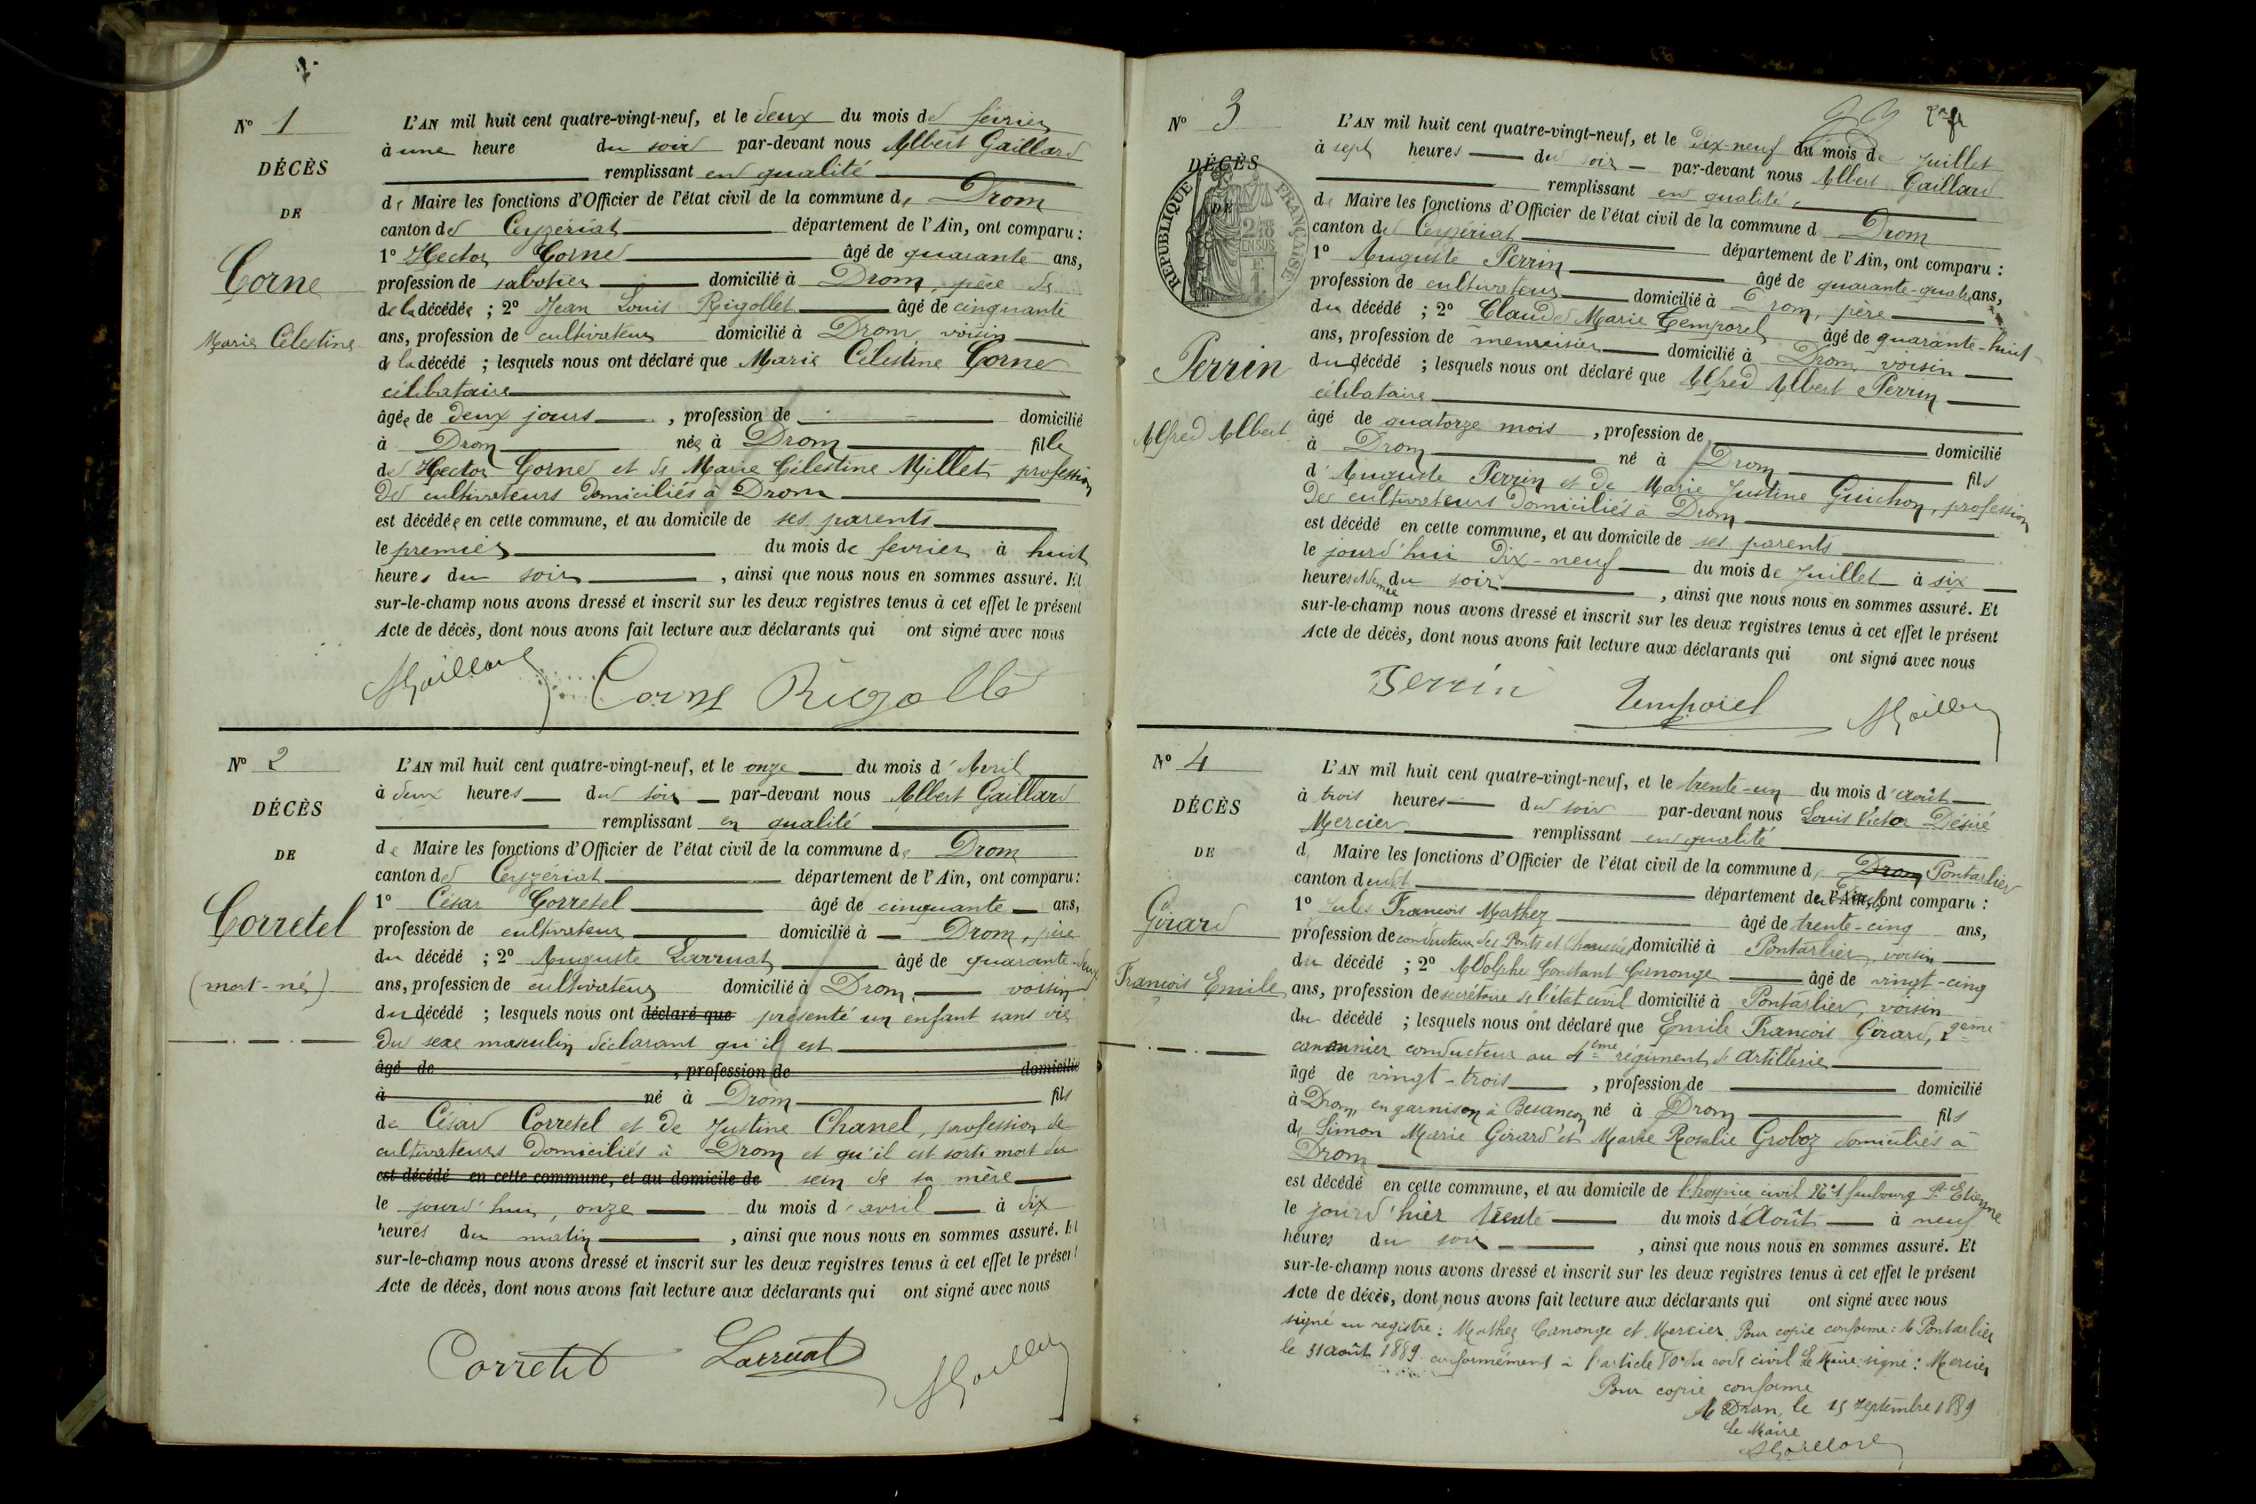 N° 1
DÉCÈS
DE
Corne
Marie Célestine
L'AN mil huit cent quatre-vingt-neuf, et le deux du mois de février
à une heure du soir par-devant nous Albert Gaillard
remplissant en qualité
de Maire les fonctions d'Officier de l'état civil de la commune de Drom
canton de Ceyzériat département de l'Ain, ont comparu :
1° Hector Corne âgé de quarante ans,
profession de sabotier domicilié à Drom, père de
de la décédée ; 2° Jean Louis Rigollet âgé de cinquante
ans, profession de cultivateur domicilié à Drom, voisin
de la décédé ; lesquels nous ont déclaré que Marie Célestine Corne
célibataire
âgée de deux jours , profession de domicilié
à Drom née à Drom fille
de Hector Corne et de Marie Célestine Millet profession
de cultivateurs domiciliés à Drom
est décédée en cette commune, et au domicile de ses parents
le premier du mois de fevrier à huit
heures du soir , ainsi que nous nous en sommes assuré. Et
sur-le-champ nous avons dressé et inscrit sur les deux registres tenus à cet effet le présent
Acte de décès, dont nous avons fait lecture aux déclarants qui ont signé avec nous
AGaillard Corne Rigollet
N° 2
DÉCÈS
DE
Corretel
(mort-né)
L'AN mil huit cent quatre-vingt-neuf, et le onze du mois d'Avril
à deux heures du soir par-devant nous Albert Gaillard
remplissant en qualité
de Maire les fonctions d'Officier de l'état civil de la commune de Drom
canton de Ceyzériat département de l'Ain, ont comparu :
1° César Corretel âgé de cinquante ans,
profession de cultivateur domicilié à Drom, père
du décédé ; 2° Auguste Larruat âgé de quarante-deux
ans, profession de cultivateur domicilié à Drom, voisin
du décédé ; lesquels nous ont déclaré que presenté un enfant sans vie
du sexe masculin déclarant qu'il est
âgé de , profession de domicilié
à né à Drom fils
de César Corretel et de Justine Chanel, profession de
cultivateurs domiciliés à Drom et qu'il est sorti mort du
est décédé en cette commune, et au domicile de sein de sa mère
le jourd'hui, onze du mois d'avril à dix
heures du matin , ainsi que nous nous en sommes assuré. Et
sur-le-champ nous avons dressé et inscrit sur les deux registres tenus à cet effet le présent
Acte de décès, dont nous avons fait lecture aux déclarants qui ont signé avec nous
Corretel Larruat AGaillard
N° 3
DÉCÈS
DE
RÉPUBLIQUE FRANÇAISE
EN SUS
Perrin
Alfred Albert
L'AN mil huit cent quatre-vingt-neuf, et le dix-neuf du mois de Juillet
à sept heures du soir par-devant nous Albert Gaillard
remplissant en qualité
de Maire les fonctions d'Officier de l'état civil de la commune d Drom
canton de Ceyzériat département de l'Ain, ont comparu :
1° Auguste Perrin âgé de quarante-quatre ans,
profession de cultivateur domicilié à Drom, père
du décédé ; 2° Claude Marie Temporel âgé de quarante-huit
ans, profession de menuisier domicilié à Drom, voisin
du décédé ; lesquels nous ont déclaré que Alfred Albert Perrin
célibataire
âgé de quatorze mois , profession de domicilié
à Drom né à Drom fils
d'Auguste Perrin et de Marie Justine Guichon, profession
de cultivateurs domiciliés à Drom
est décédé en cette commune, et au domicile de ses parents
le jourd'hui dix-neuf du mois de Juillet à six
heures et demie du soir , ainsi que nous nous en sommes assuré. Et
sur-le-champ nous avons dressé et inscrit sur les deux registres tenus à cet effet le présent
Acte de décès, dont nous avons fait lecture aux déclarants qui ont signé avec nous
Perrin Temporel AGaillard
N° 4
DÉCÈS
DE
Girard
François Emile
L'AN mil huit cent quatre-vingt-neuf, et le trente-un du mois d'août
à trois heures du soir par-devant nous Louis Victor Désiré
Mercier remplissant en qualité
de Maire les fonctions d'Officier de l'état civil de la commune de Drom Pontarlier
canton dudit département de l'Ain, ont comparu :
1° Jules François Mathez âgé de trente-cinq ans,
profession de conducteur des Ponts et Chaussées domicilié à Pontarlier, voisin
du décédé ; 2° Adolphe Constant Canonge âgé de vingt-cinq
ans, profession de secrétaire de l'état civil domicilié à Pontarlier, voisin
du décédé ; lesquels nous ont déclaré que Emile François Girard, 2ᵉᵐᵉ
canonnier conducteur au 4ème régiment d'artillerie
âgé de vingt-trois , profession de domicilié
à Drom, en garnison à Besançon né à Drom fils
de Simon Marie Girard et Marie Rosalie Groboz domiciliés à
Drom
est décédé en cette commune, et au domicile de l'hospice civil N°1 faubourg St Etienne
le jourd'hier trente du mois d'Août à neuf
heures du soir , ainsi que nous nous en sommes assuré. Et
sur-le-champ nous avons dressé et inscrit sur les deux registres tenus à cet effet le présent
Acte de décès, dont nous avons fait lecture aux déclarants qui ont signé avec nous
signé au registre : Mathez Canonge et Mercier. Pour copie conforme : à Pontarlier
le 31 août 1889 conformément à l'article 80 du code civil Le Maire signé : Mercier
Pour copie conforme
A Drom, le 15 septembre 1889
Le Maire
AGaillard